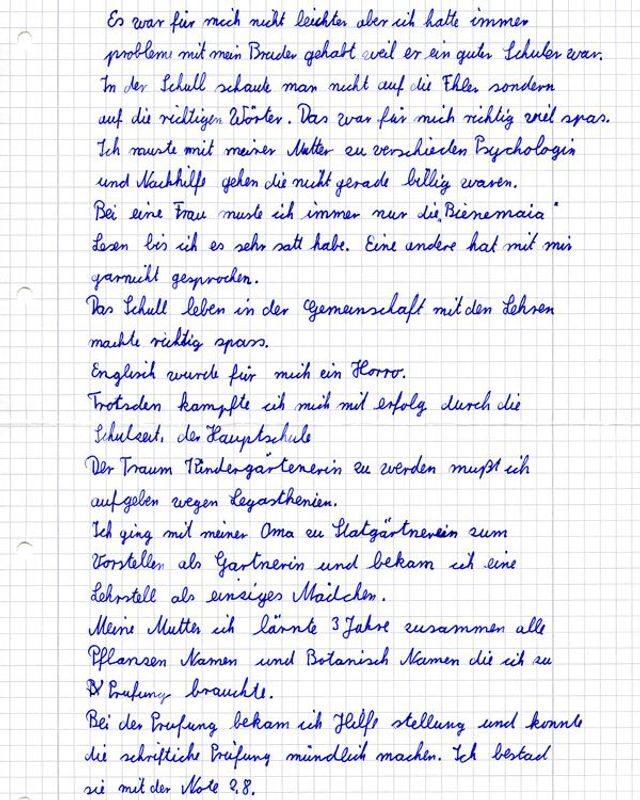 Es war für mich nicht leichter aber ich hatte immer
probleme mit mein Bruder gehabt weil er ein guter Schuler war.
In der Schull schaute man nicht auf die Ehler sondern
auf die richtigen Wörter. Das war für mich richtig viel spas.
Ich muste mit meiner Mutter zu verschieden Psychologin
und Nachhilfe gehen die nicht gerade billig waren.
Bei eine Frau muste ich immer nur die „Bienemaia“
Lesen bis ich es sehr satt habe. Eine andere hat mit mir
garnicht gesprochen.
Das Schull leben in der Gemeinschaft mit den Lehren
machte richtig spass.
Englisch wurde für mich ein Horro.
Trotsden kampfte ich mich mit erfolg durch die
Schulzeit, der Hauptschule
Der Traum Kindergärtenerin zu werden mußt ich
aufgeben wegen Legasthenien.
Ich ging mit meiner Oma zu Statgärtnerein zum
Vorstellen als Gartnerin und bekam ich eine
Lehrstell als einsiges Mädchen.
Meine Mutter ich lärnte 3 Jahre zusammen alle
Pflanzen Namen und Botanisch Namen die ich zu
Prufung brauchte.
Bei der Prufung bekam ich Hilfe stellung und konnte
die schriftliche Prüfung mündlich machen. Ich bestad
sie mit der Note 2,8.